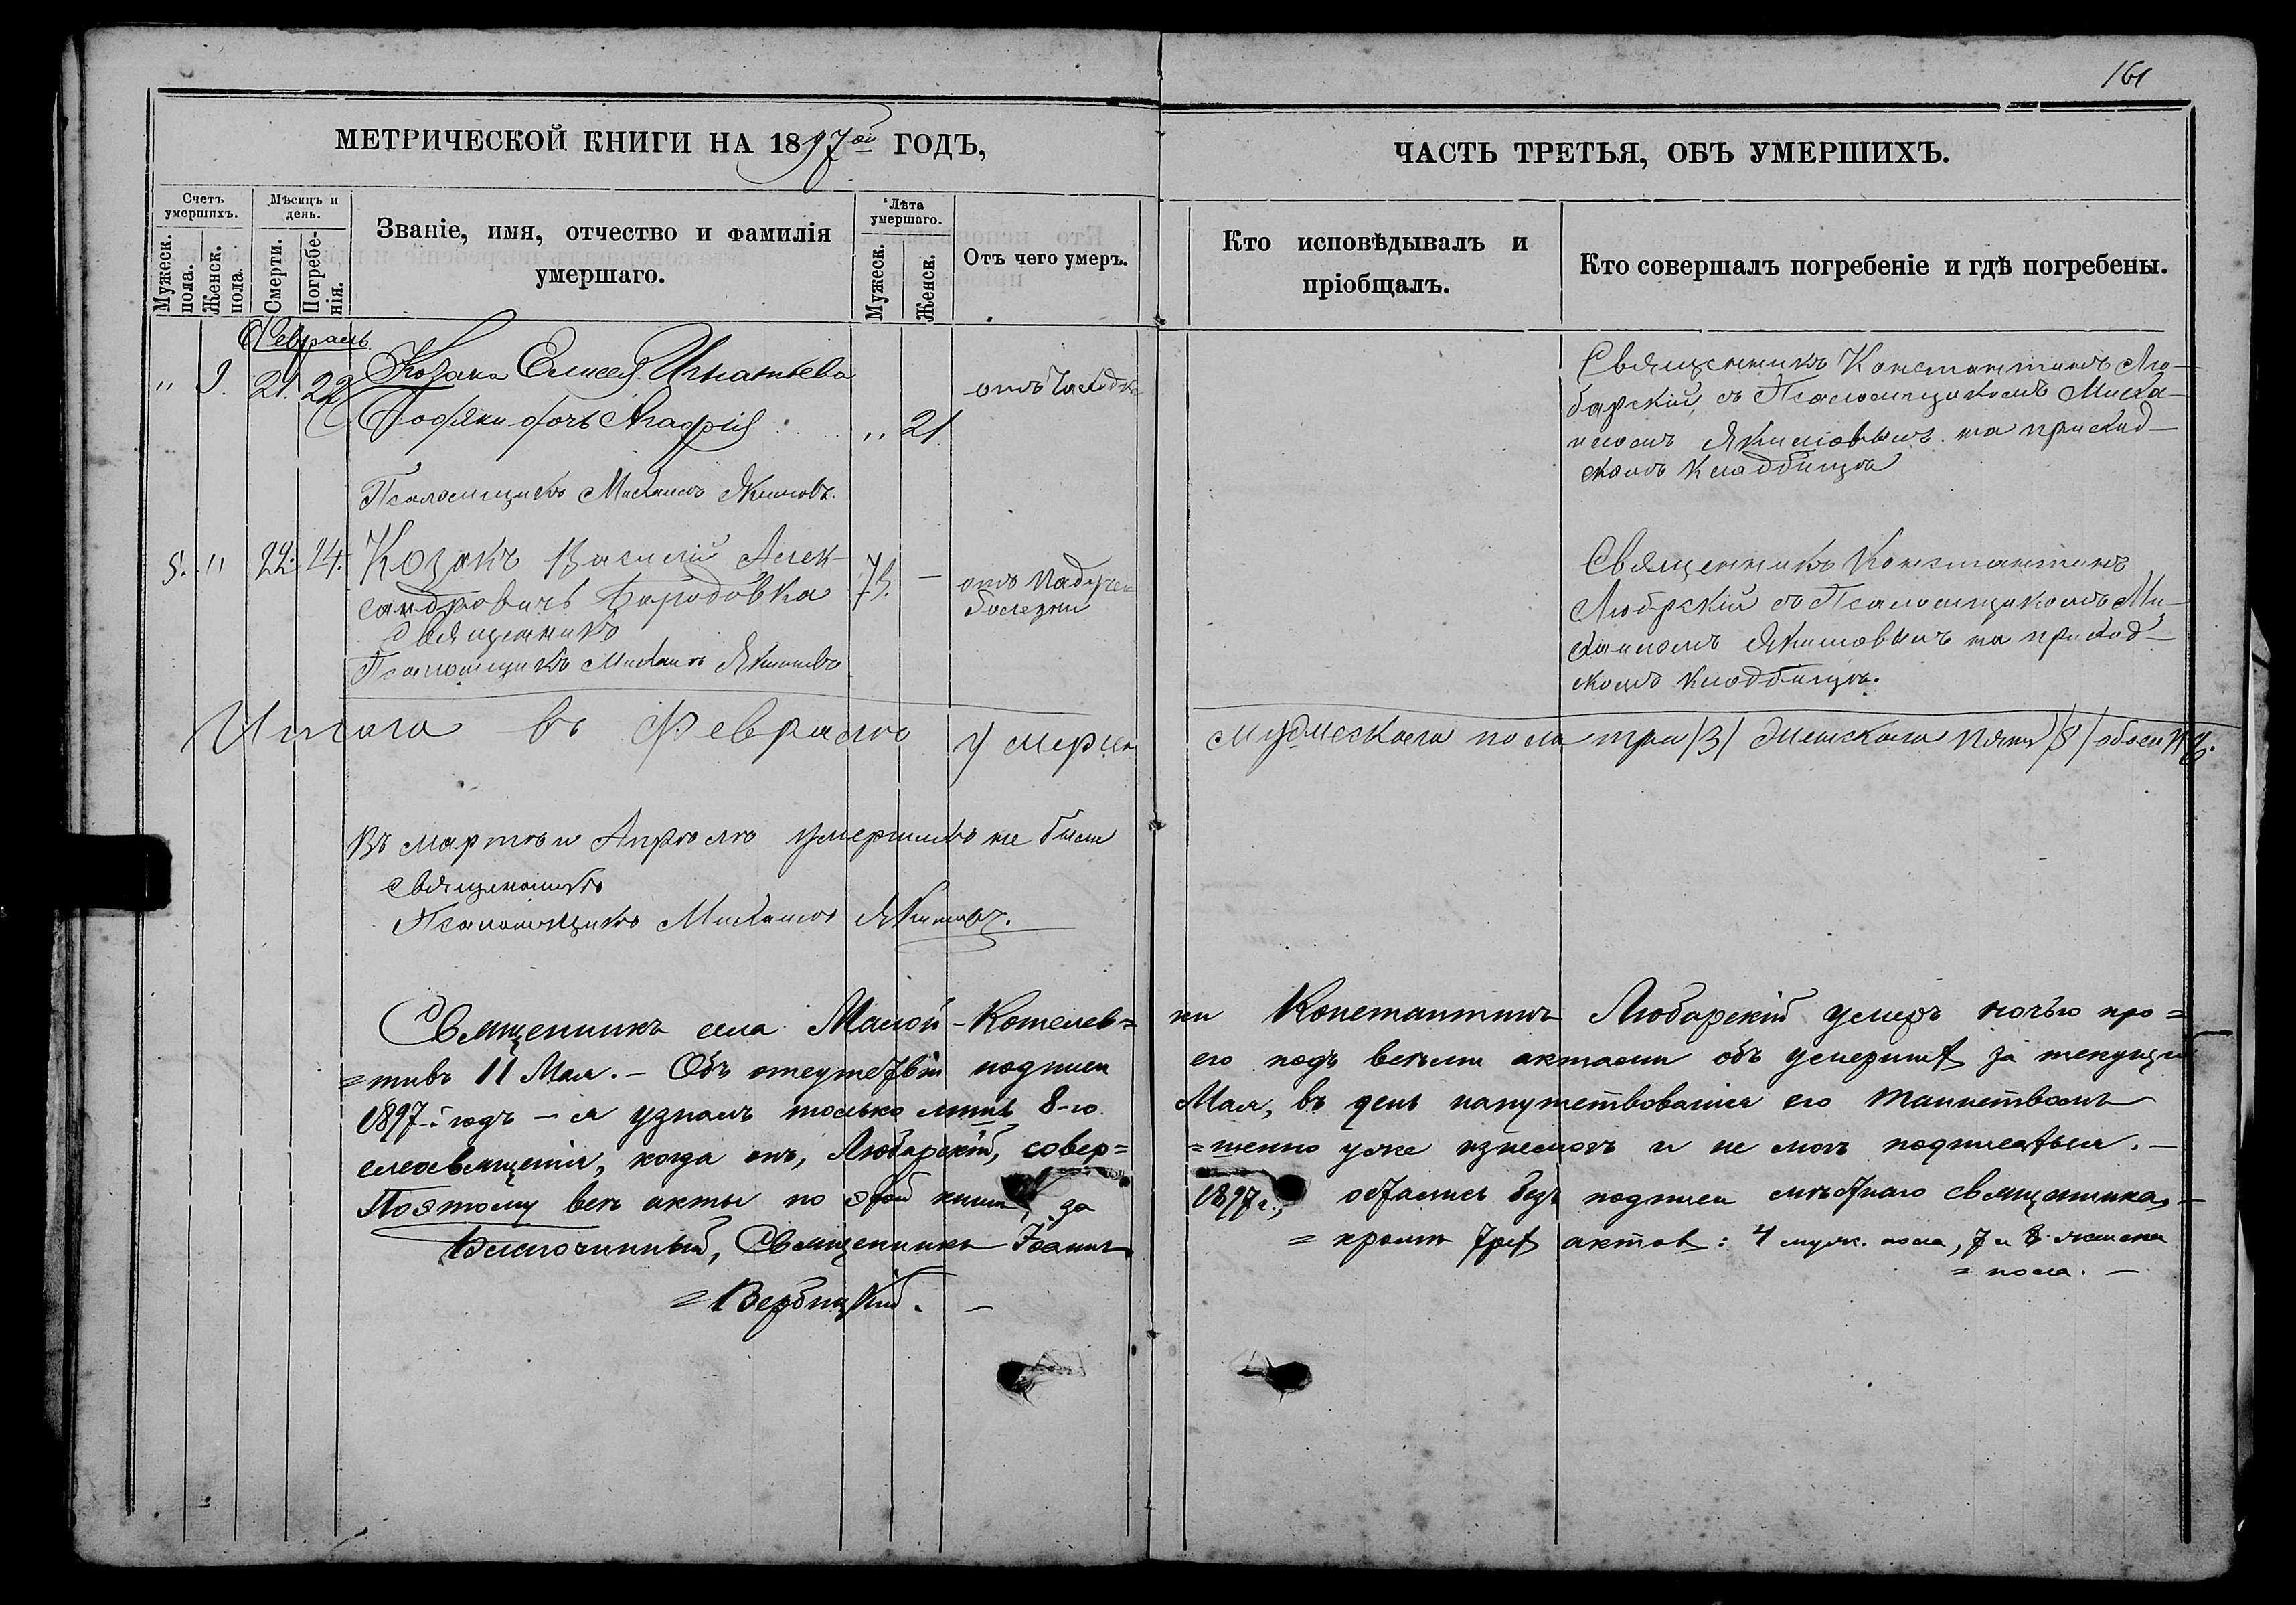 161
МЕТРИЧЕСКОЙ КНИГИ НА 1897ой ГОДЪ,
ЧАСТЬ ТРЕТЬЯ, ОБЪ УМЕРШИХЪ.
Счетъ умершихъ.
Мужеск. пола.
Женск. пола.
Мѣсяцъ и день.
Смерти.
Погребенія.
Званіе, имя, отчество и фамилія
умершаго.
Лѣта умершаго.
Мужеск.
Женск.
Отъ чего умеръ.
Кто исповѣдывалъ и
пріобщалъ.
Кто совершалъ погребеніе и гдѣ погребены.
Февраль
" 9. 21. 22 Козака Елисея Игнатьева
дочь Агафія " 21.
отъ чахотки
Священникъ Константинъ Лю-
барскій, съ Псаломщикомъ Миха-
иломъ Якимовымъ на приход-
скомъ кладбищѣ
Псаломщикъ Михаилъ Якимовъ.
5. " 22. 24. Козакъ Василій Алек-
сандровичъ Бородавка 75. —
Священникъ
Псаломщикъ Михаилъ Якимовъ
отъ падучей
болезни
Священникъ Константинъ
Любрскій съ Псаломщикомъ Ми-
хаиломъ Якимовымъ на приход-
скомъ кладбищѣ.
Итого въ Февралѣ умерло мужескаго пола три /3/ женскаго пять /5/ обоего
Въ мартѣ и Апрѣлѣ умершихъ не было
Священникъ
Псаломщикъ Михаилъ Якимовъ.
Священникъ села Малой-Котелев=ки Константинъ Любарскій умеръ ночью про=
=тивъ 11 Мая. – Объ отсутствіи подписи его подъ всѣми актами объ умершихъ за текущій
1897-й годъ – я узналъ только лишь 8-го Мая, въ день напутствованія его таинствомъ
елеосвященія, когда онъ, Любарскій, совер=
=шенно уже изнемогъ и не могъ подписаться. –
Поэтому всѣ акты по этой книгѣ, за 1897 г., остались безъ подписи мѣстнаго священника, –
= кромѣ трехъ актовъ: 4 муж. пола, 7 и 8 женска
= пола. –
Благочинный, Священникъ Іоаннъ
= Вербицкій. –